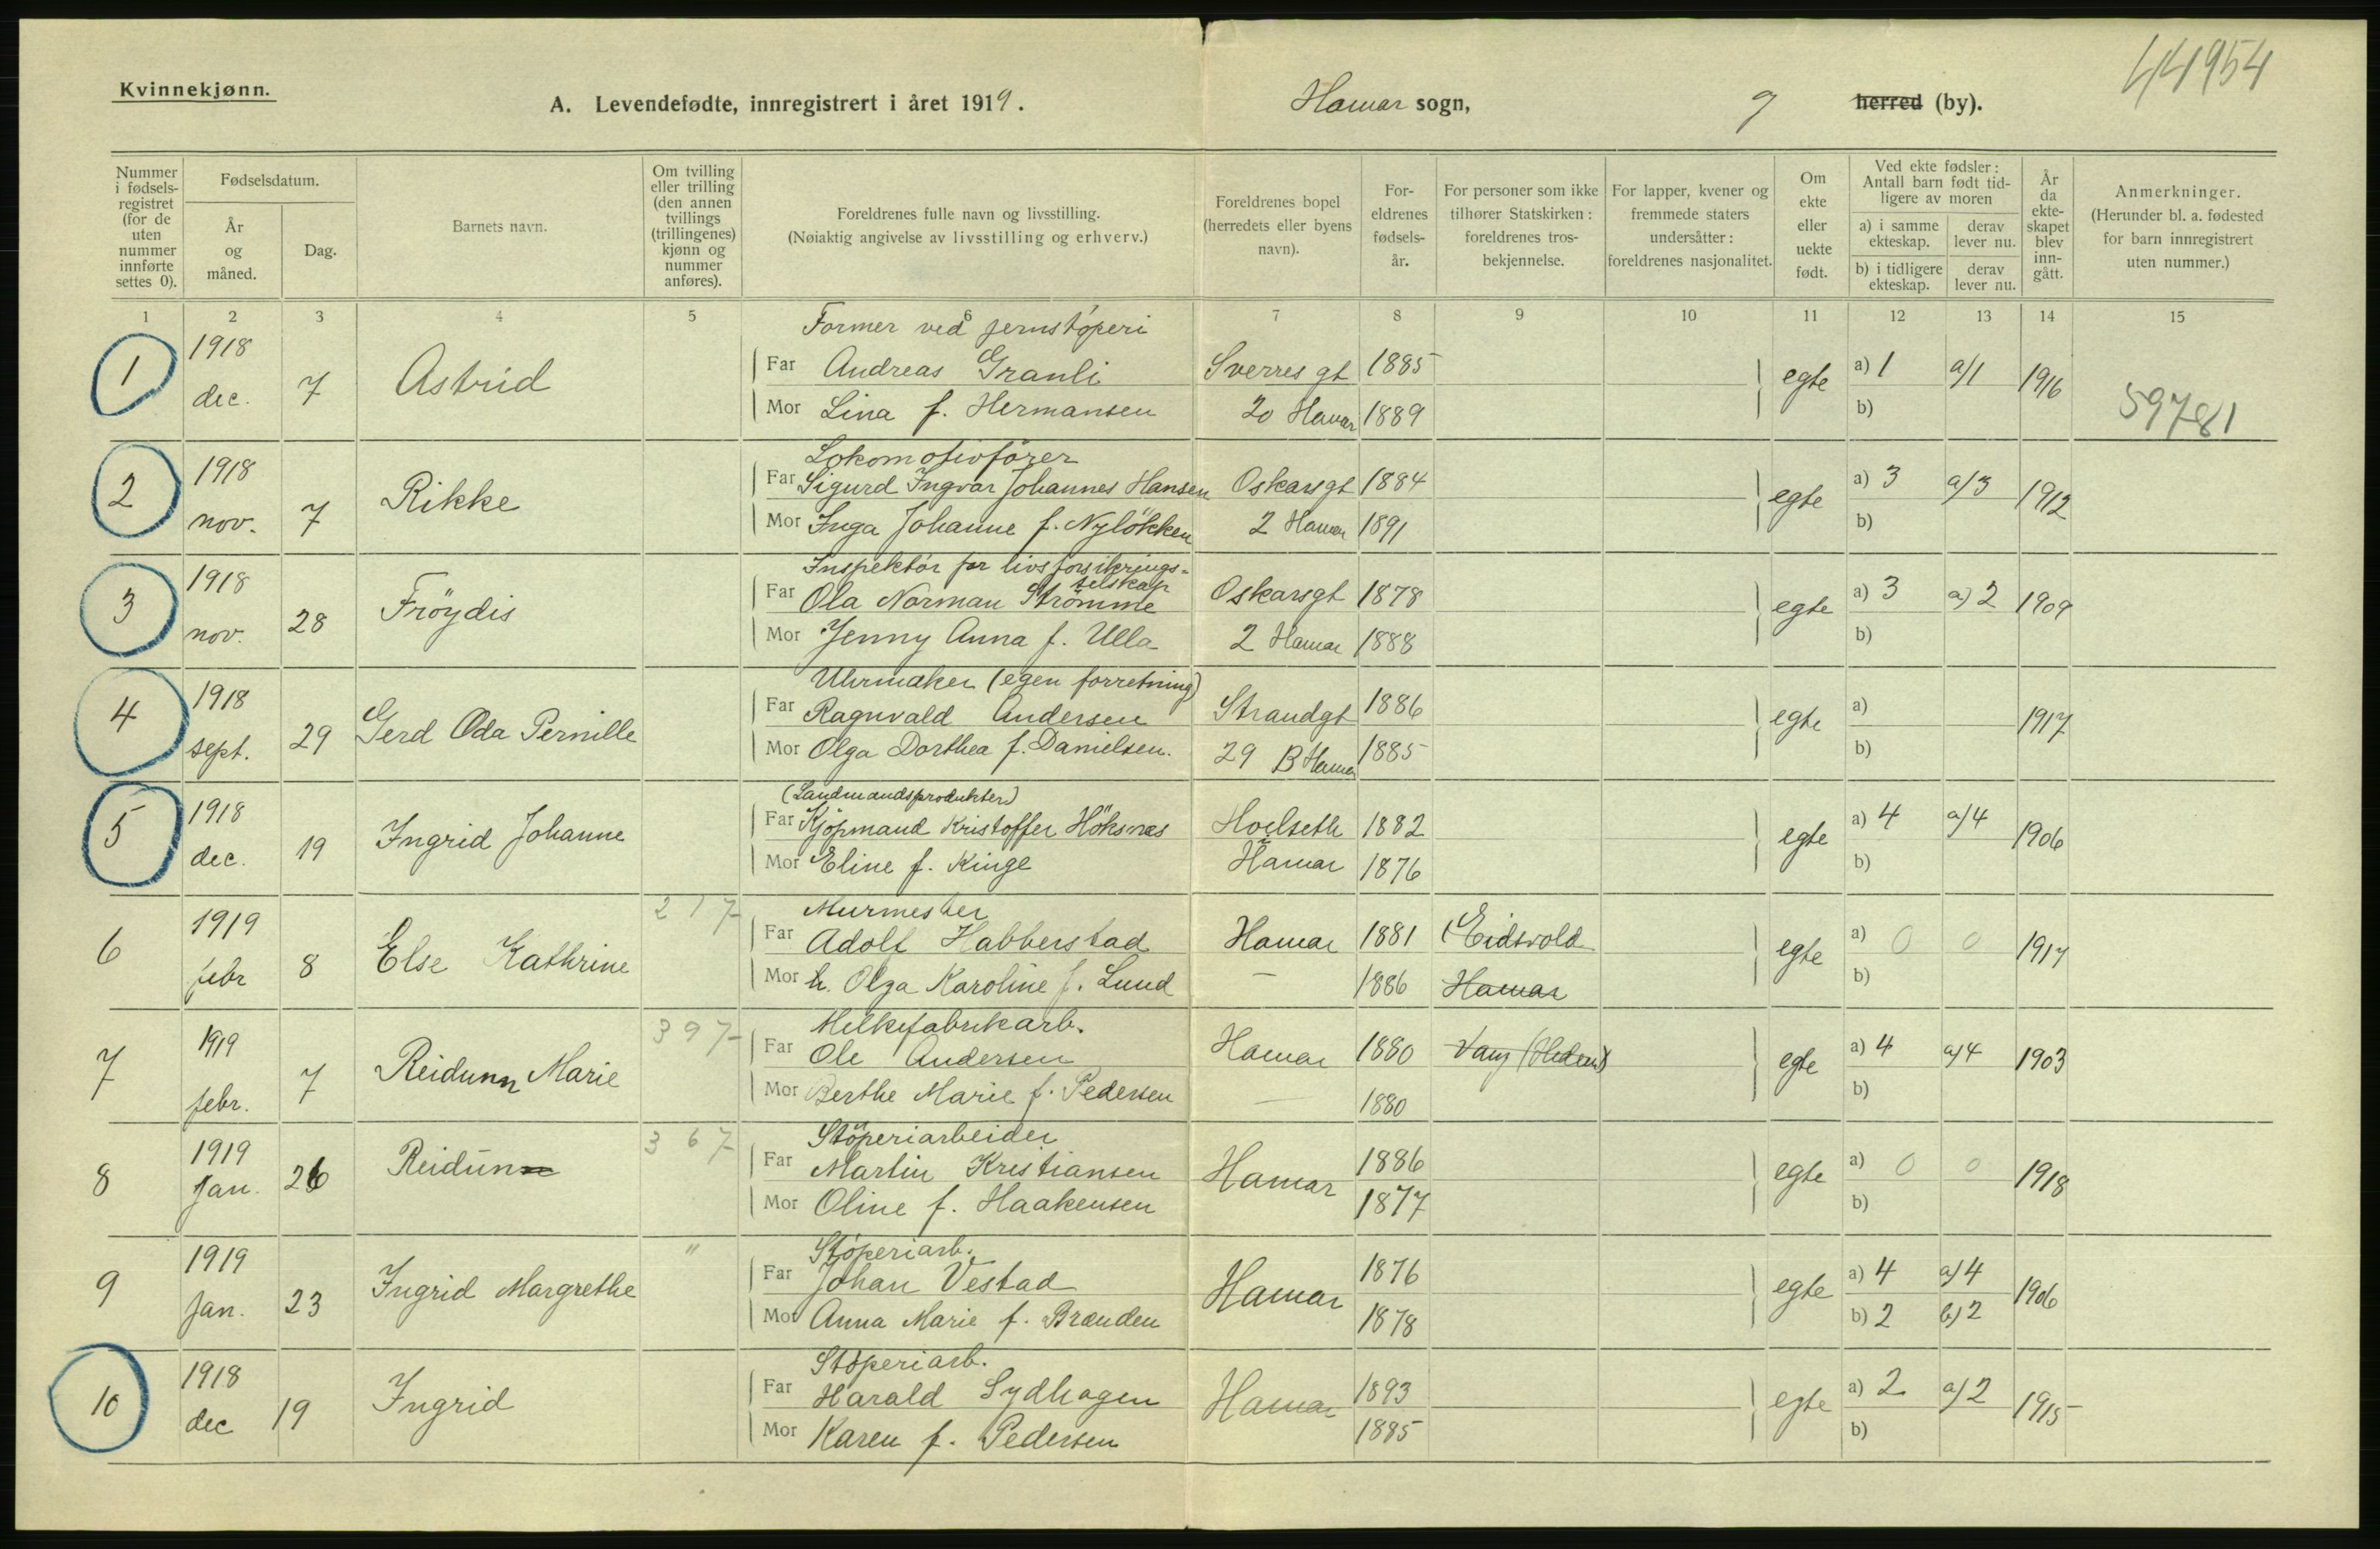 44954
Kvinnekjønn.
A. Levendefødte, innregistrert i året 1919.
Hamar sogn,
9 herred (by).
Nummer i fødsels-registret (for de uten nummer innførte settes 0).
Fødselsdatum.
År og måned.
Dag.
Barnets navn.
Om tvilling eller trilling (den annen tvillings (trillingenes) kjønn og nummer anføres).
Foreldrenes fulle navn og livsstilling.
(Nøiaktig angivelse av livsstilling og erhverv.)
Foreldrenes bopel (herredets eller byens navn).
For-eldrenes fødsels-år.
For personer som ikke tilhører Statskirken: foreldrenes tros-bekjennelse.
For lapper, kvener og fremmede staters undersåtter: foreldrenes nasjonalitet.
Om ekte eller uekte født.
Ved ekte fødsler: Antall barn født tid-ligere av moren
a) i samme ekteskap.
derav lever nu.
b) i tidligere ekteskap.
derav lever nu.
År da ekte-skapet blev inn-gått.
Anmerkninger.
(Herunder bl. a. fødested for barn innregistrert uten nummer.)
1 2 3 4 5 6 7 8 9 10 11 12 13 14 15
Former ved jernstöperi
1 1918 dec. 7 Astrid Far Andreas Granli Sverres gt 1885 egte a) 1 a/1 1916
Mor Lina f. Hermansen 20 Hamar 1889 b) 59781
Lokomotivförer
2 1918 nov. 7 Rikke Far Sigurd Ingvar Johannes Hansen Oskarsgt 1884 egte a) 3 a/3 1912
Mor Inga Johanne f. Nylökken 2 Hamar 1891 b)
Inspektör for livsforsikrings-selskap
3 1918 nov. 28 Fröydis Far Ola Norman Strömme Oskarsgt 1878 egte a) 3 a) 2 1909
Mor Jenny Anna f. Ulla 2 Hamar 1888 b)
Uhrmaker (egen forretning)
4 1918 sept. 29 Gerd Oda Pernille Far Ragnvald Andersen Strandgt 1886 egte a) 1917
Mor Olga Dorthea f. Danielsen. 29 B Hamar 1885 b)
(Landmandsprodukter)
5 1918 dec. 19 Ingrid Johanne Far Kjöpmand Kristoffer Höksnes Hoelseth 1882 egte a) 4 a/4 1906
Mor Eline f. Kinge Hamar 1876 b)
217 Murmester
6 1919 febr 8 Else Kathrine Far Adolf Habberstad Hamar 1881 (Eidsvold egte a) 0 0 1917
Mor h. Olga Karoline f. Lund — 1886 Hamar b)
397 Melkefabrikarb.
7 1919 febr. 7 Reidunn Marie Far Ole Andersen Hamar 1880 Vang (Hedem) egte a) 4 a/4 1903
Mor Berthe Marie f. Pedersen — 1880 b)
367 Stöperiarbeider
8 1919 Jan. 26 Reidunn Far Martin Kristiansen Hamar 1886 egte a) 0 0 1918
Mor Oline f. Haakensen 1877 b)
" Stöperiarb.
9 1919 Jan. 23 Ingrid Margrethe Far Johan Vestad Hamar 1876 egte a) 4 a/4 1906
Mor Anna Marie f. Brænden 1878 b) 2 b) 2
Stöperiarb.
10 1918 dec 19 Ingrid Far Harald Sydhagen Hamar 1893 egte a) 2 a/2 1915
Mor Karen f. Pedersen 1895 b)